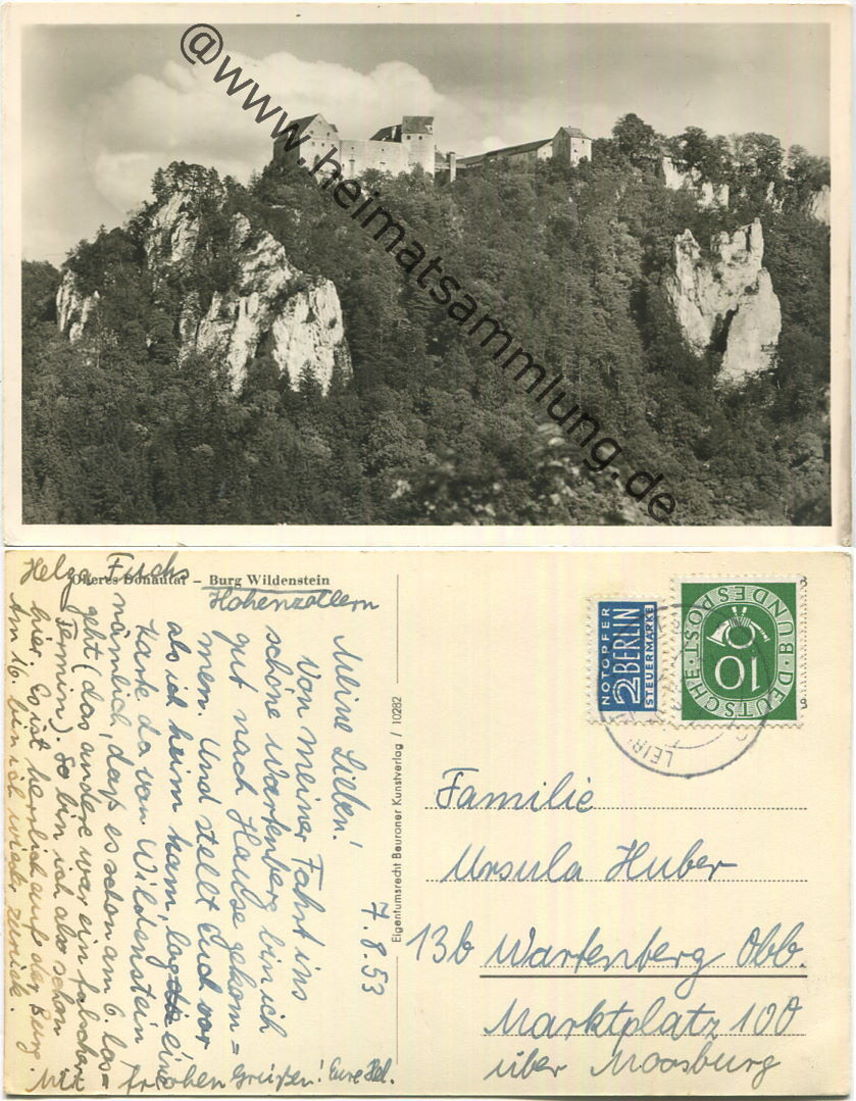 @www.heimatsammlung.de
Oberes Donautal – Burg Wildenstein
Hohenzollern
Helga Fuchs
7.8.53
Meine Lieben!
Von meiner Fahrt ins
schöne Wartenberg bin ich
gut nach Hause gekom=
men. Und stellt Euch vor
als ich heim kam, lag die eine
Karte da von Wildenstein
nämlich, daß es schon am 6. los=
geht (das andere war ein falscher
Termin). So bin ich also schon
hier. Es ist herrlich auf der Burg.
Am 16. bin ich wieder zurück.
Mit frohen Grüßen! Eure Hel.
Eigentumsrecht Beuroner Kunstverlag / 10282
NOTOPFER
2 BERLIN
STEUERMARKE
DEUTSCHE BUNDESPOST
10
Familie
Ursula Huber
13b Wartenberg Obb.
Marktplatz 100
über Moosburg